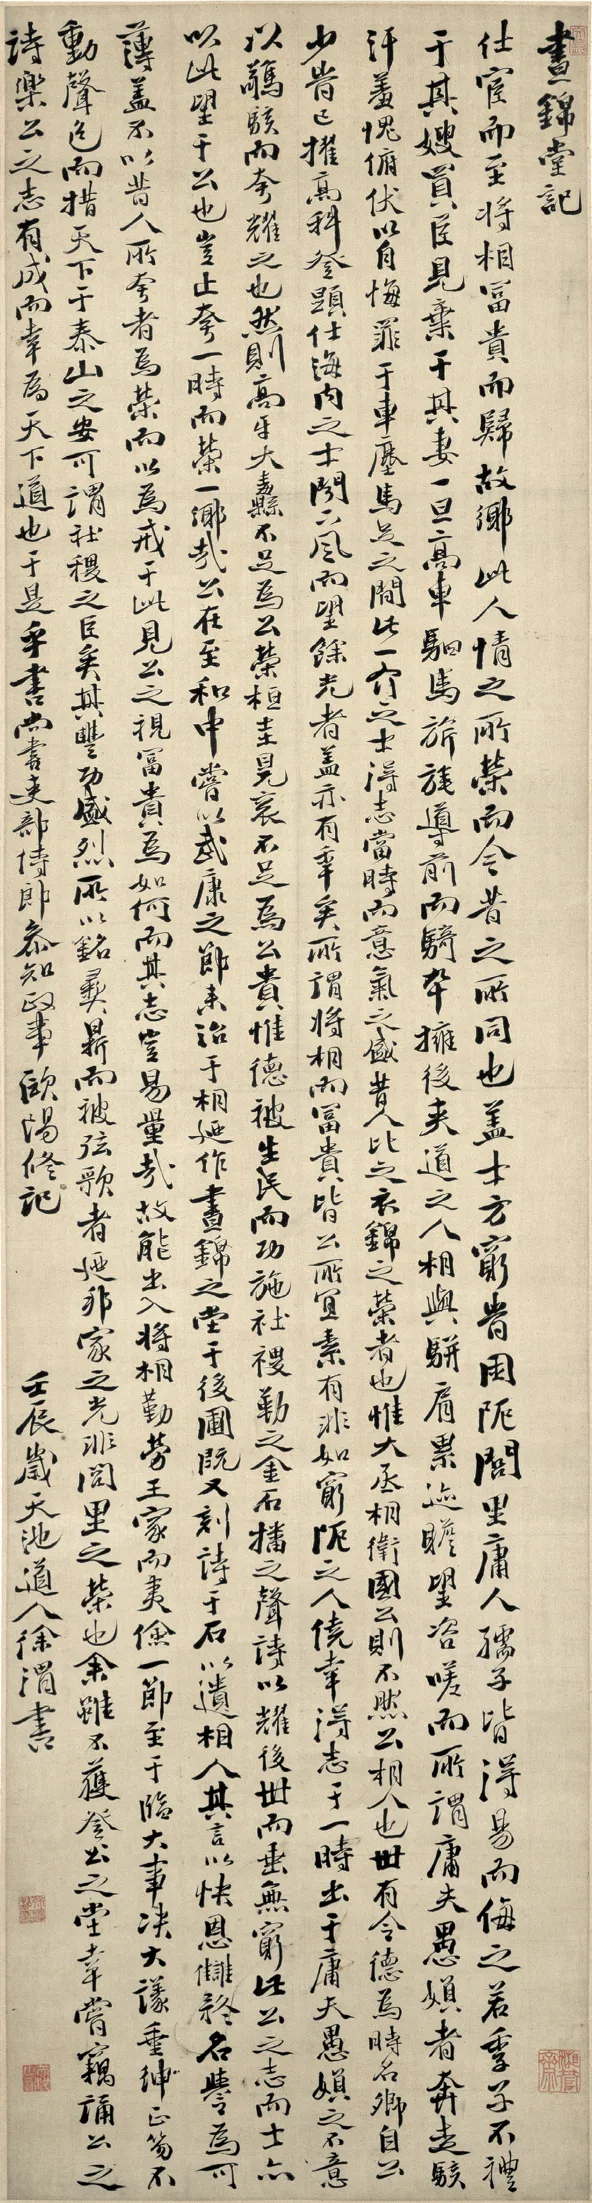 晝錦堂記
仕宦而至將相冨貴而歸故鄉此人情之所榮而今昔之所同也盖士方窮時困阨閭里庸人孺子皆得易而侮之若季子不禮
于其嫂買臣見棄于其妻一旦高車駟馬旂旄導前而騎卒擁後夾道之人相與駢肩累迹瞻望咨嗟而所謂庸夫愚婦者奔走駭
汗羞愧俯伏以自悔罪于車塵馬足之間此一介之士得志當時而意氣之盛昔人比之衣錦之榮者也惟大丞相衛國公則不然公相人也世有令德為時名卿自公
少時已擢高科登顯仕海内之士聞下風而望餘光者盖亦有年矣所謂將相而冨貴皆公所宜素有非如窮阨之人僥幸得志于一時出于庸夫愚婦之不意
以驕駭而夸耀之也然則高牙大纛不足為公榮桓圭冕衮不足為公貴惟德被生民而功施社稷勒之金石播之聲詩以耀後世而垂無窮此公之志而士亦
以此望于公也豈止夸一時而榮一鄉哉公在至和中嘗以武康之節来治于相廼作晝錦之堂于後圃既又刻詩于石以遺相人其言以快恩讎矜名譽為可
薄盖不以昔人所夸者為榮而以為戒于此見公之視冨貴為如何而其志豈易量哉故能出入將相勤勞王家而夷險一節至于臨大事決大議垂紳正笏不
動聲色而措天下于泰山之安可謂社稷之臣矣其豐功盛烈所以銘彞鼎而被弦歌者廼邦家之光非閭里之榮也余雖不獲登公之堂幸嘗竊誦公之
詩樂公之志有成而幸為天下道也于是乎書尚書吏部侍郎參知政事歐陽修記
壬辰歲天池道人徐渭書